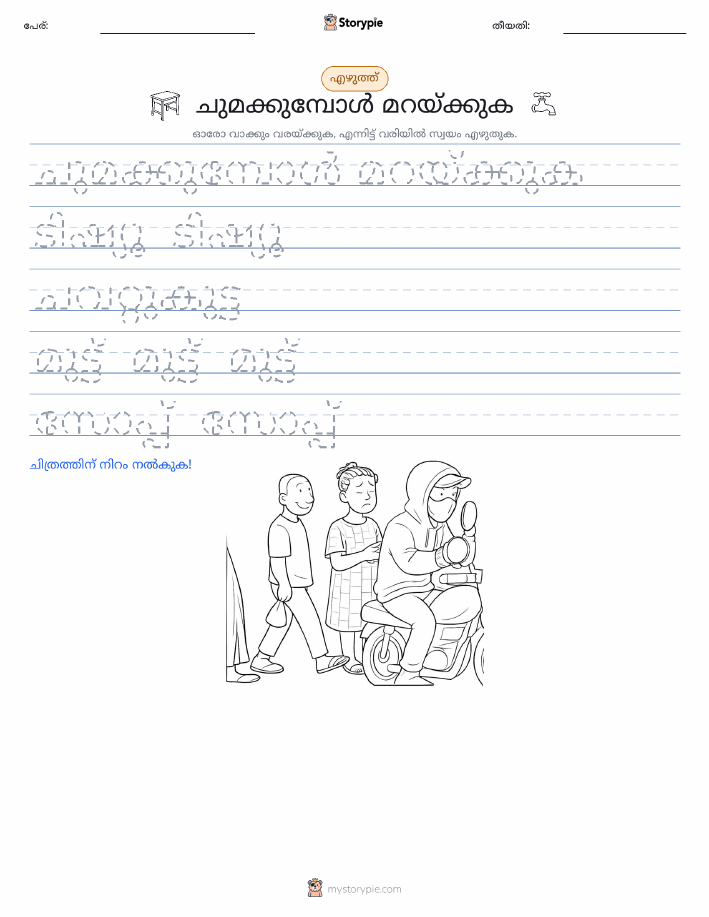 പേര്:
Storypie
തീയതി:
എഴുത്ത്
ചുമക്കുമ്പോൾ മറയ്ക്കുക
ഓരോ വാക്കും വരയ്ക്കുക, എന്നിട്ട് വരിയിൽ സ്വയം എഴുതുക.
ചുമക്കുമ്പോൾ മറയ്ക്കുക
ടിഷ്യൂ ടിഷ്യൂ
ചവറ്റുകുട്ട
മുട്ട് മുട്ട് മുട്ട്
സോപ്പ് സോപ്പ്
ചിത്രത്തിന് നിറം നൽകുക!
mystorypie.com